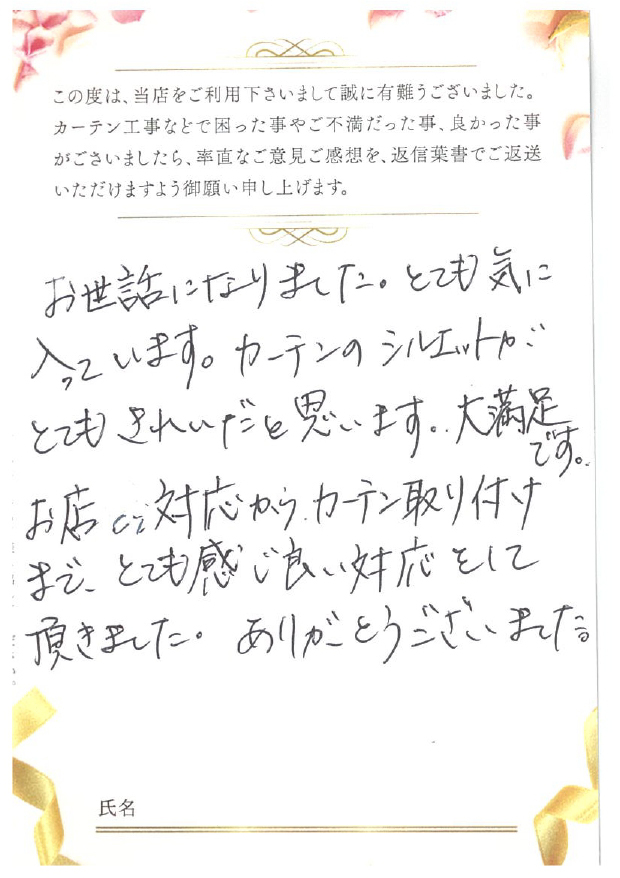 この度は、当店をご利用下さいまして誠に有難うございました。
カーテン工事などで困った事やご不満だった事、良かった事
がございましたら、率直なご意見ご感想を、返信葉書でご返送
いただけますよう御願い申し上げます。
お世話になりました。とても気に
入っています。カーテンのシルエットが
とてもきれいだと思います。大満足
です。
お店 対応から、カーテン取り付け
まで、とても感じ良い対応をして
頂きました。ありがとうございました。
氏名